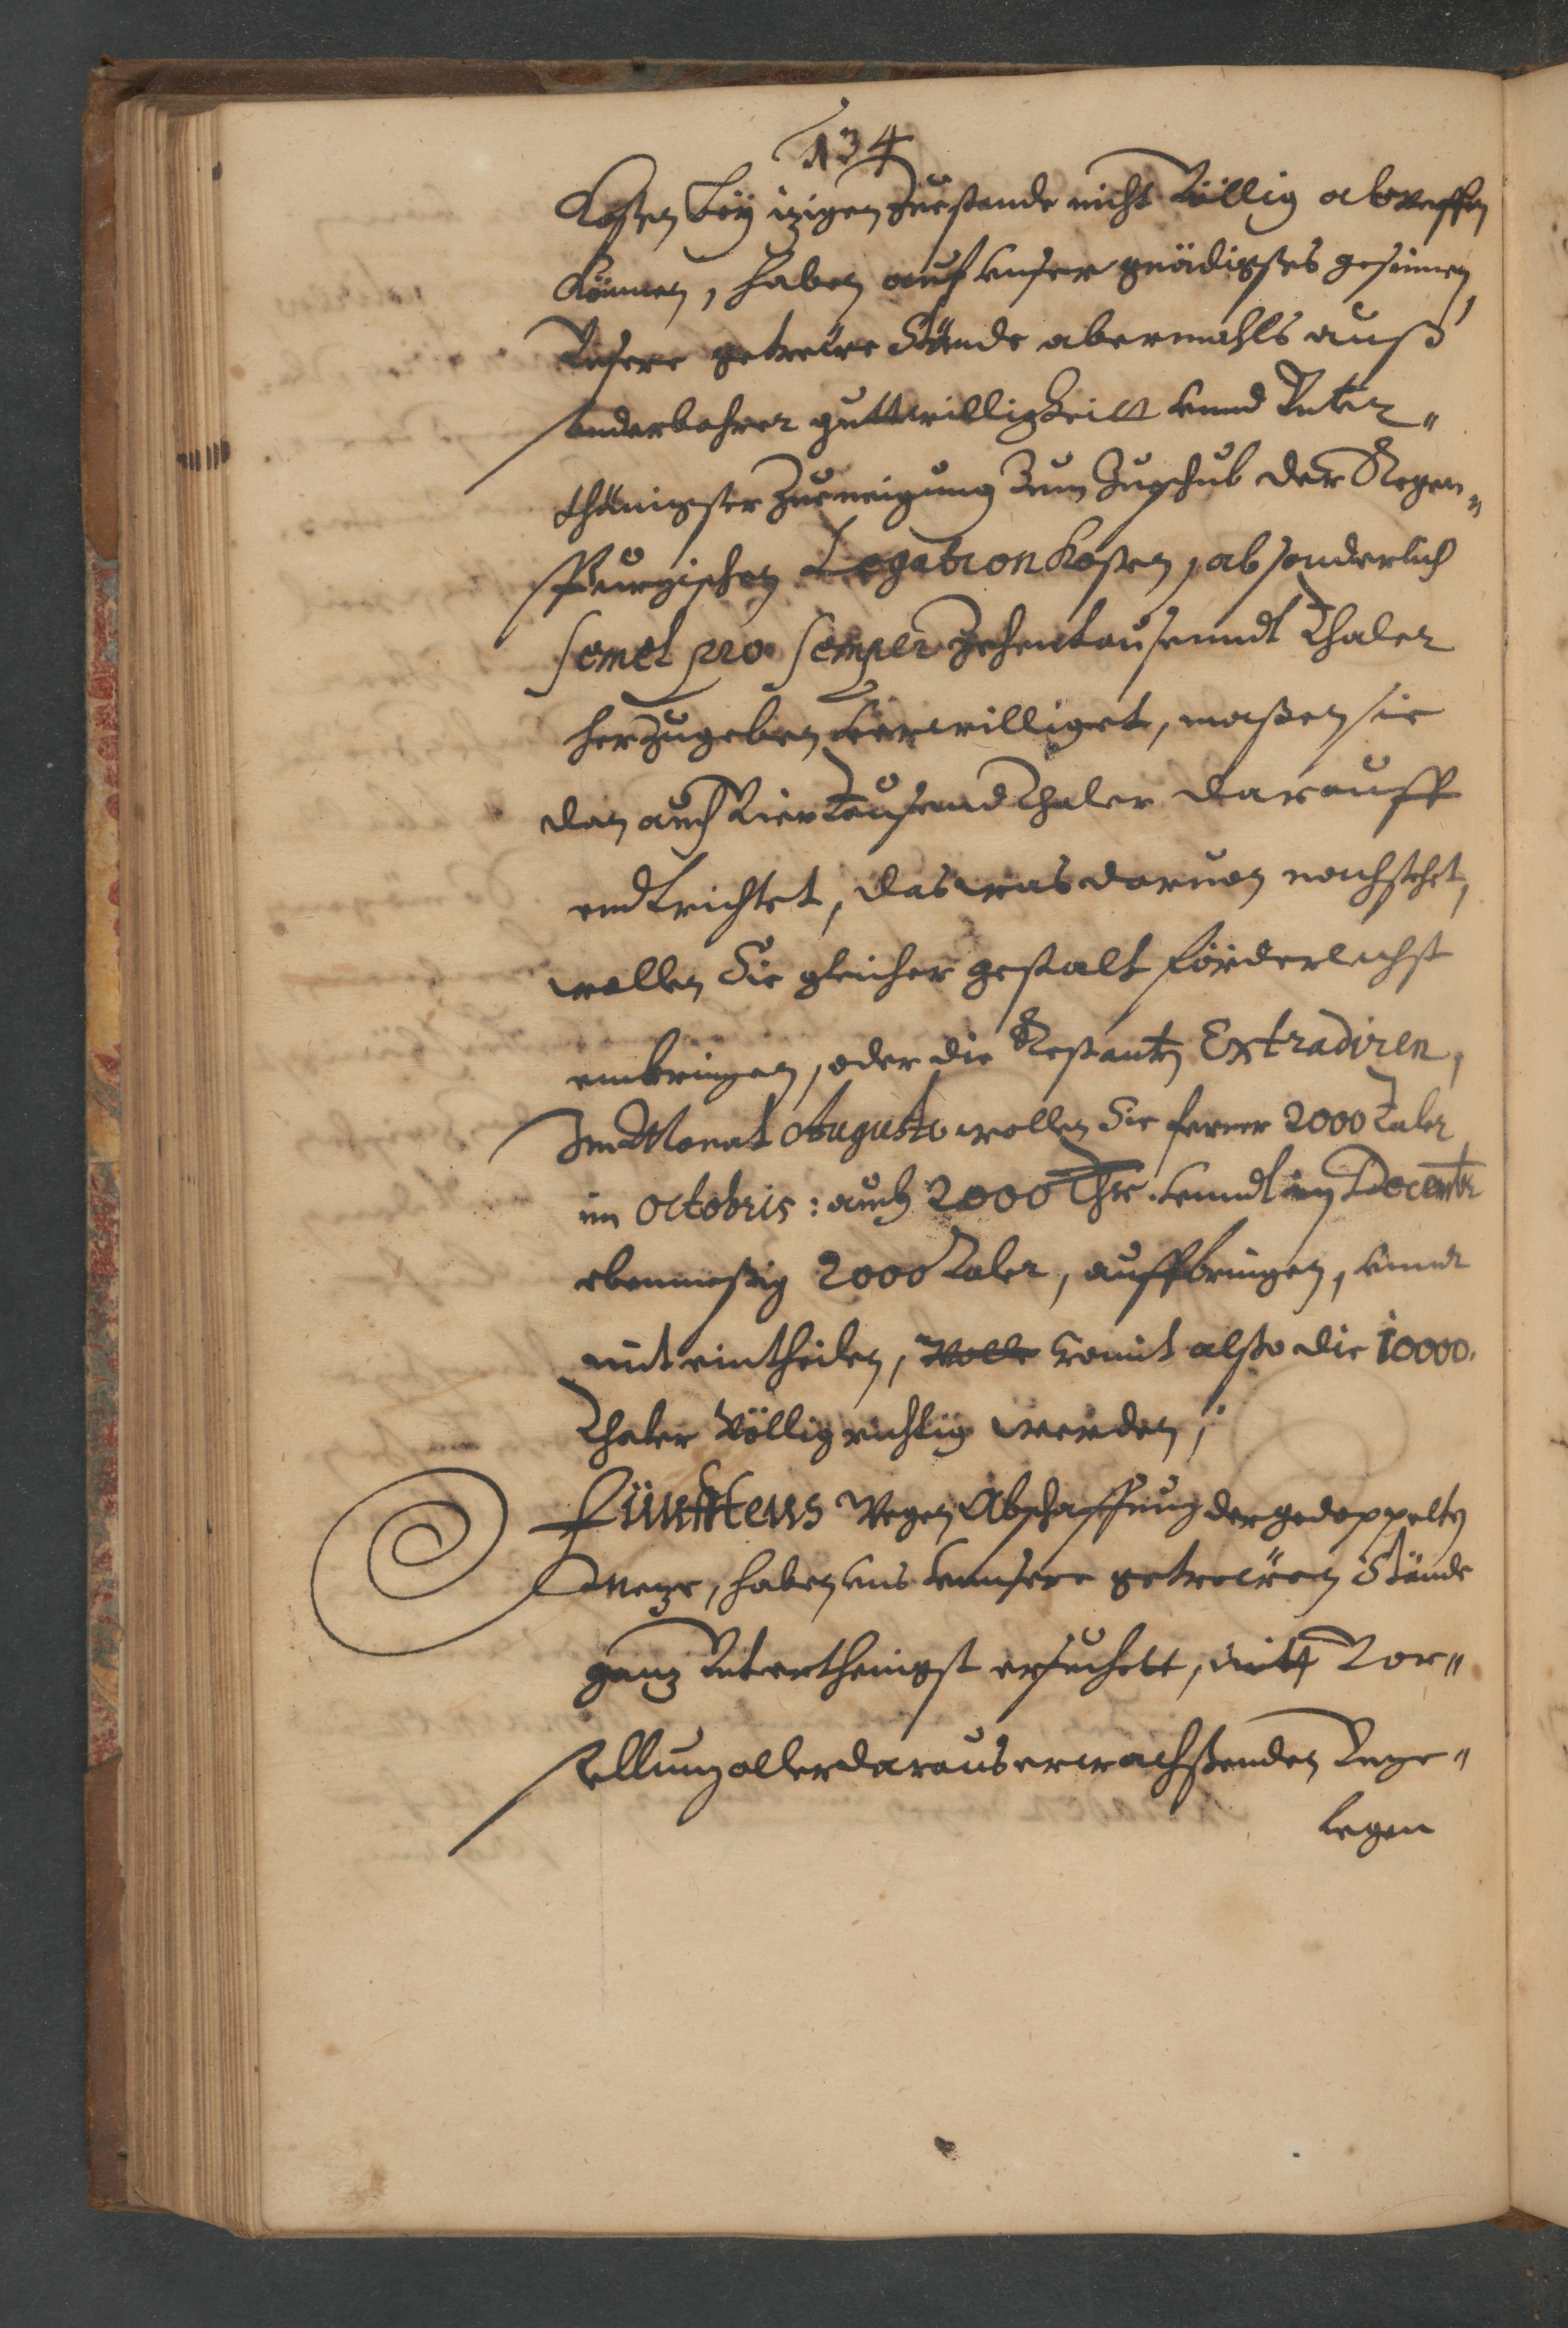 134
Kosten bey itzigen Zuestande nicht Völlig abtreffen
können, haben auf unser gnädigstes gesinnen,
Unsere getreüe Stände abermahls auß
sonderbahrer guttwilligkeitt unnd Unter„
thänigster Zuneigung Zum Zuschub der Regen„
spurgischen Legation kosten, absonderlich
semel pro semper Zehentausenndt Thaler
herzugeben verwilliget, maßen sie
dan auch Viertausend Thaler darauff
endtrichtet, das was daruon nachstehet,
wollen Sie gleicher gestalt förderlichst
einbringen, oder die Restanten Extradiren,
Im Monat Augusto wollen Sie ferner 2000 Taler
im Octobris: auch 2000 Thlr. unndt im Decembr
ebenmeßig 2000 Taler, auffbringen, unndt
mit eintheilen, womit alßo die 10000.
Thaler Völlig richtig werden,
Fünfftens Wegen Abschaffung der gedoppelten
Metze, haben uns unnsere getreüen Stände
gantz Untertheinigst ersuchett, mitt Vor„
stellung aller daraus erwachßenden Unge„
legen